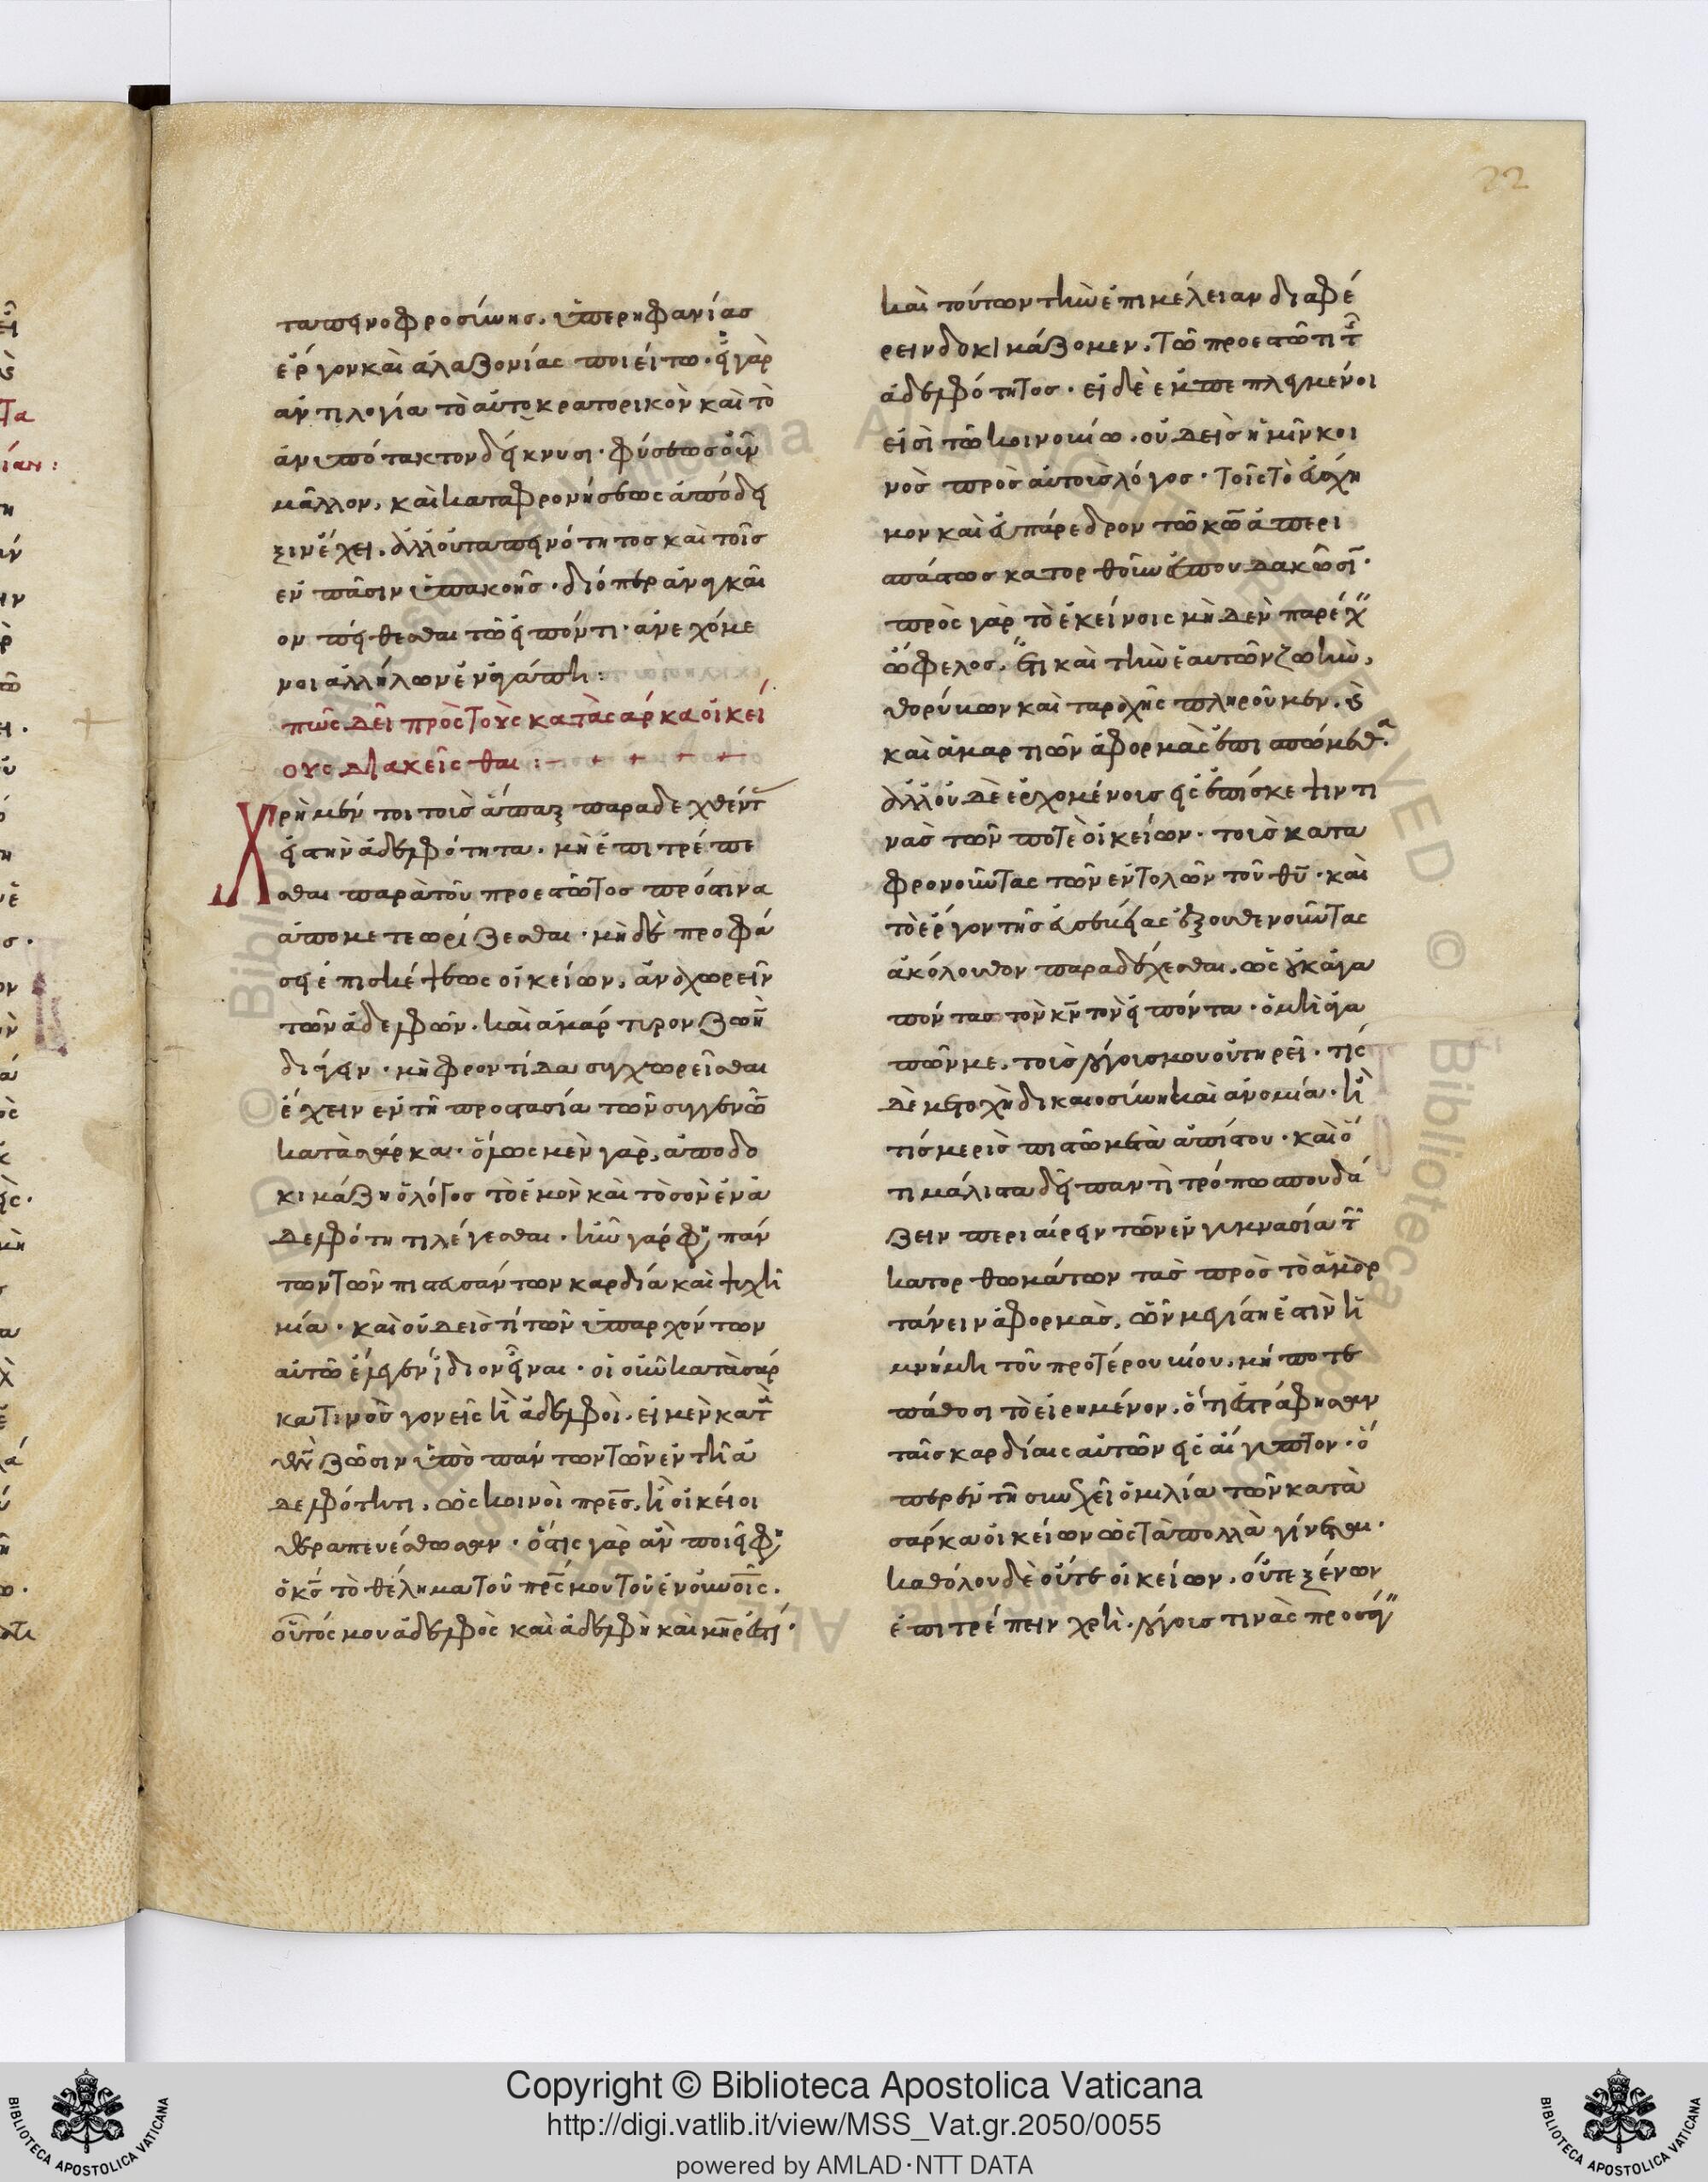 22
ταπεινοφροσύνης, ὑπερηφανίας
ἔργον καὶ ἀλαζονίας ποιείτω· ἡ γὰρ
ἀντιλογία τὸ αὐτοκρατορικὸν καὶ τὸ
ἀνυπότακτον δείκνυσι· φύσεως οὖν
μᾶλλον, καὶ καταφρονήσεως ἀπόδει
ξιν ἔχει, ἀλλ' οὐ ταπεινότητος καὶ τῆς
ἐν πᾶσιν ὑπακοῆς· διόπερ ἀναγκαῖ
ον πείθεσθαι τῷ εἰπόντι· ἀνεχόμε
νοι ἀλλήλων ἐν ἀγάπῃ:
πῶς δεῖ πρὸς τοὺς κατὰ σάρκα οἰκεί
ους διακεῖσθαι :- + + + +
Χρὴ μέν τοι τοὺς ἅπαξ παραδεχθέντ
εἰς τὴν ἀδελφότητα, μὴ ἐπιτρέπε
σθαι παρὰ τοῦ προεστῶτος πρός τινα
ἀπομετεωρίζεσθαι· μὴ δὲ προφά
σει ἐπισκέψεως οἰκείων, ἀναχωρεῖν
τῶν ἀδελφῶν· καὶ ἀμάρτυρον ζωὴν
διάγειν· μὴ φροντίδα συγχωρεῖσθαι
ἔχειν ἐν τῇ προστασία τῶν συγγενῶν
κατὰ σάρκα· ὅμως μὲν γὰρ, ἀποδο
κιμάζει ὁ λόγος τὸ ἐμὸν καὶ τὸ σὸν ἐν ἀ
δελφότητι λέγεσθαι· ἦν γάρ φη, πάν
των τῶν πιστευσάντων καρδία καὶ ψυχὴ
μία· καὶ οὐδεὶς τί τῶν ὑπαρχόντων
αὐτῷ ἔλεγεν ἴδιον εἶναι· οἱ οὖν κατὰ σάρ
κα τινοσ γονεῖς ἢ ἀδελφοὶ, εἰ μὲν κατὰ
θν ζῶσιν ὑπὸ πάντων τῶν ἐν τῇ ἀ
δελφότητι, ὡς κοινοὶ πρες, ἢ οἰκεῖοι
θεραπευέσθωσαν· ὅστις γὰρ ἂν ποιῇ φη
ὁ κς τὸ θέλημα τοῦ πρς μου τοῦ ἐν οὐνοῖς,
οὗτός μου ἀδελφὸς καὶ ἀδελφὴ καὶ μηρ ἐστί·
καὶ τούτων τὴν ἐπιμέλειαν διαφέ
ρειν δοκιμάζομεν, τῷ προεστῶτι τῆς
ἀδελφότητος· εἰ δὲ ἐμπεπλεγμένοι
εἰσὶ τῷ κοινῷ βίω, οὐδεὶς ἡμῖν κοι
νὸς πρὸς αὐτοὺς λόγος· τοῖς τὸ εὔσχη
μον καὶ εὐπάρεδρον τῷ κῶ ἀπερι
σπάστως κατορθοῦν ἐσπουδακόσι·
πρὸς γὰρ τὸ ἐκείνοις μηδὲν παρέχ
ὄφελος, ἔτι καὶ τὴν ἑαυτῶν ζωὴν,
θορύβων καὶ ταραχῆς πληροῦμεν, καὶ
καὶ ἁμαρτιῶν ἀφορμὰς ἐπισπώμεθα·
ἀλλ' οὐδὲ ἐρχομένοις εἰς ἐπίσκεψιν τι
νὰς τῶν ποτὲ οἰκείων· τοὺς κατα
φρονοῦντας τῶν ἐντολῶν τοῦ θυ· καὶ
τὸ ἔργον τῆς εὐσεβείας ἐξουθενοῦντας
ἀκόλουθον παραδέχεσθαι, ὡς οὐκ ἀγα
πόντας τὸν κν τὸν εἰπόντα· ὁ μὴ ἀγα
πῶν με, τοὺς λόγους μου οὐ τηρεῖ· τίς
δὲ μετοχὴ δικαιοσύνη καὶ ἀνομία· ἢ
τίς μερὶς πιστῷ μετὰ ἀπίστου· καὶ ὅ
τι μάλιστα δεῖ παντὶ τρόπω σπουδά
ζειν περιαίρειν τῶν ἐν γυμνασία τῶν
κατορθωμάτων τὰς πρὸς τὸ ἁμαρ
τάνειν ἀφορμὰς, ὧν μεγίστη ἐστὶν ἡ
μνήμη τοῦ προτέρου βίου, μή ποτε
πάθωσι τὸ εἰρημένον, ὅτι ἐστράφησαν
ταῖς καρδίαις αὐτῶν εἰς αἴγυπτον· ὅ
περ ἐν τῇ συνεχεῖ ὁμιλία τῶν κατὰ
σάρκα οἰκείων ὡς τὰ πολλὰ γίνεται·
καθόλου δὲ οὔτε οἰκείων, οὔτε ξένων
ἐπιτρέπειν χρὴ, λόγοις τινὰς προσάγ
Copyright © Biblioteca Apostolica Vaticana
http://digi.vatlib.it/view/MSS_Vat.gr.2050/0055
powered by AMLAD·NTT DATA
BIBLIOTECA APOSTOLICA VATICANA
BIBLIOTECA APOSTOLICA VATICANA